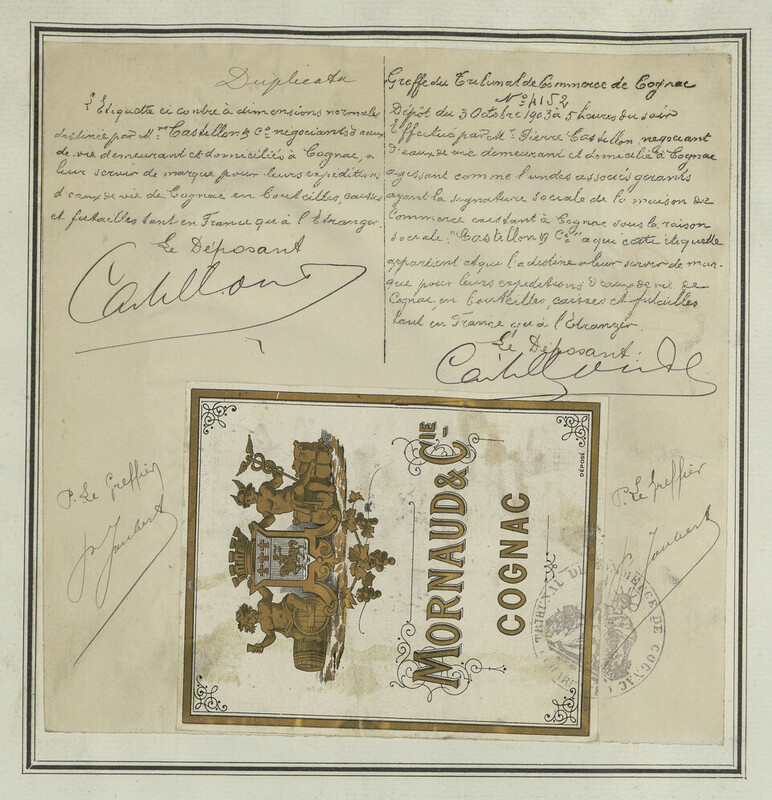 Duplicata
L'Etiquette ci contre à dimensions normale
destinée par M.rs Castellon & Co négociants d'eaux
de vie demeurant et domiciliés à Cognac, a
leur servir de marque pour leurs expéditions
d'eaux de vie de Cognac en bouteilles, caisses
et futailles tant en France qu'à l'Etranger.
Le Déposant
Castellon
Greffe du Tribunal de Commerce de Cognac
No 4152
Dépôt du 3 Octobre 1903 à 5 heures du soir
Effectué par M. Pierre Castellon négociant
d'eaux de vie demeurant et domicilié à Cognac
agissant comme l'un des associés gérants
ayant la signature sociale de la maison de
Commerce existant à Cognac sous la raison
sociale: "Castellon & Co" a qui cette étiquette
appartient et qui l'a destine a leur servir de mar-
que pour leurs expéditions d'eaux de vie de
Cognac, en bouteilles, caisses et futailles
tant en France qu'à l'Etranger.
Le Déposant:
P. Le Greffier
Joubert
MORNAUD & CIE
COGNAC
DÉPOSÉ
P. Le Greffier
Joubert
TRIBUNAL DE COMMERCE DE COGNAC